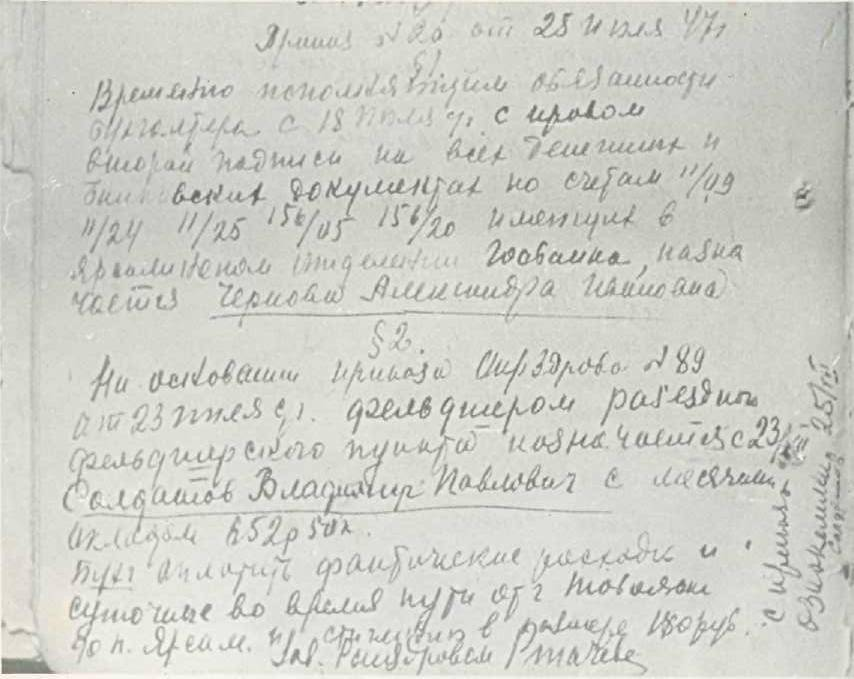 Приказ №20 от 25 июля 47г
§1
Временно исполняющим обязанности
бухгалтера с 18 июля с правом
второй подписи на всех денежных и
банковских документах по счетам 11/09
11/24 11/25 156/05 156/20 имеющих в
отделении Госбанка, назна
чается Чернова Александра Ивановна
§2.
На основании приказа Окрздрава №89
от 23 июля с.г. фельдшером разездного
фельдшерского пункта назначается с 23/VII
Солдатов Владимир Павлович с месячным
окладом 652р 50к.
Бухг оплатить фактические расходы и
суточные во время пути от г
до п. Ярсал. и в размере руб.
Зав. Райздравом
с приказом
ознакомлен 25/VII